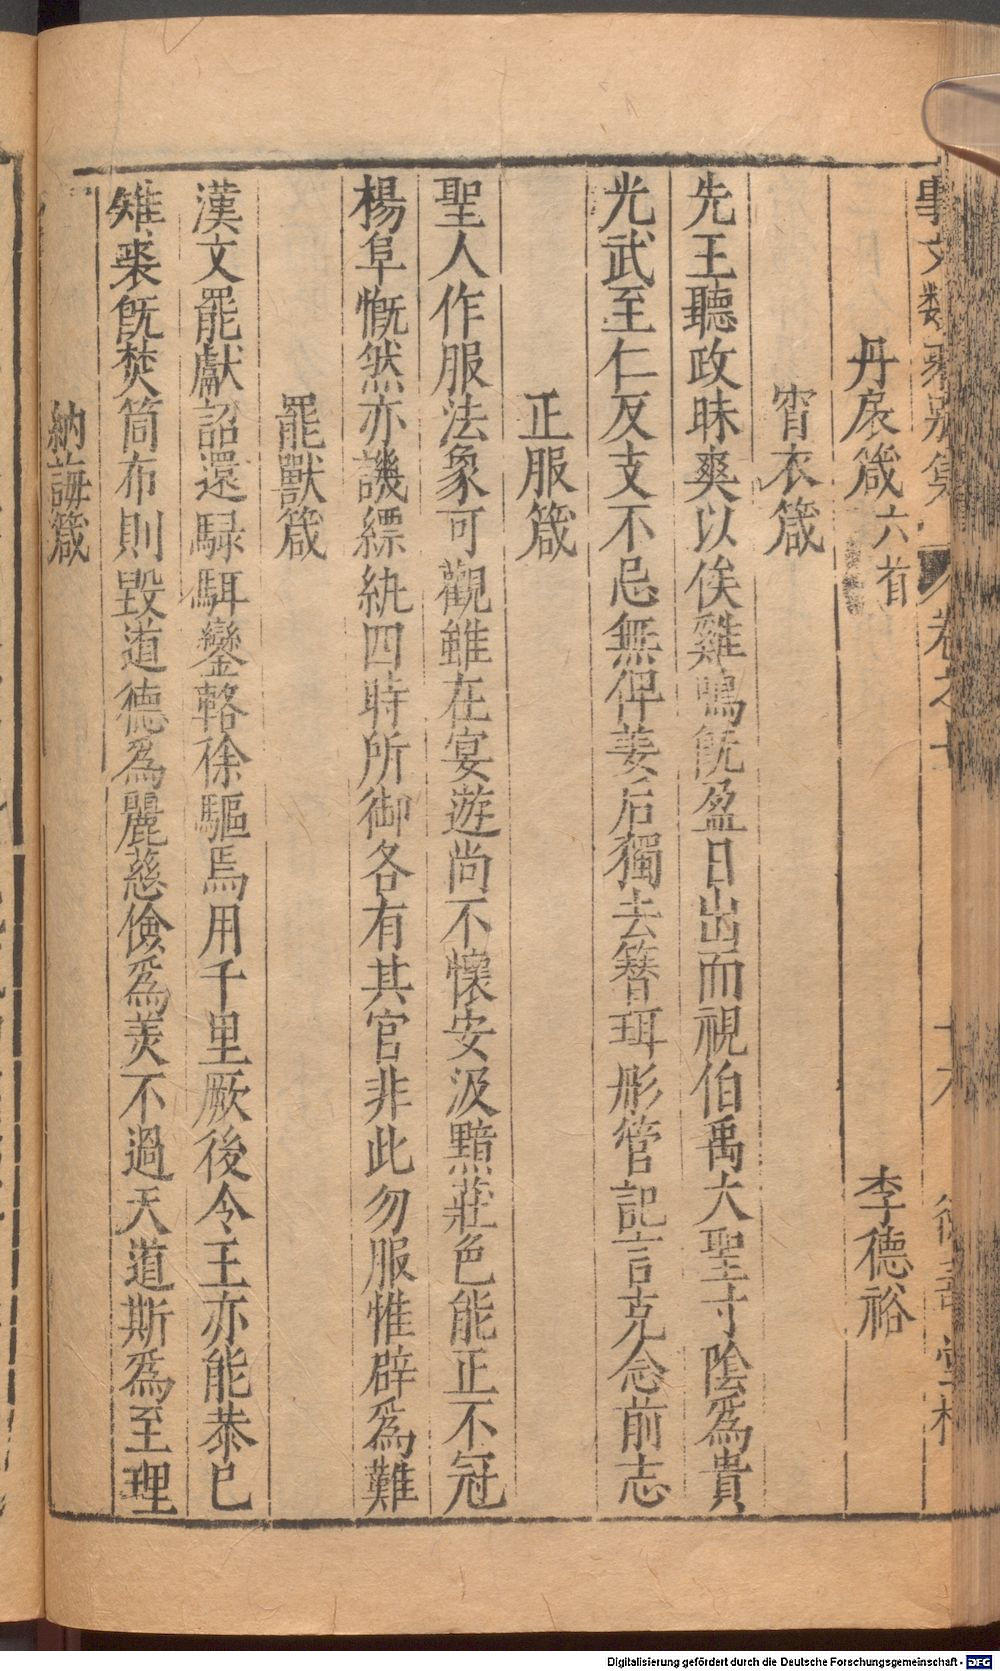 事文類聚別集 卷之七
十六 德壽堂梓
丹扆箴六首 李德裕
宵衣箴
先王聽政昧爽以俟雞鳴旣盈日出而視伯禹大聖寸陰爲貴
光武至仁反支不忌無俾姜后獨去簪珥彤管記言克念前志
正服箴
聖人作服法象可觀雖在宴遊尚不懷安汲黯莊色能正不冠
楊阜慨然亦譏縹紈四時所御各有其官非此勿服惟辟爲難
罷獸箴
漢文罷獻詔還騄駬鑾輅徐驅焉用千里厥後令王亦能恭已
雉裘旣焚筒布則毀道德爲麗慈儉爲羙不過天道斯爲至理
納誨箴
Digitalisierung gefördert durch die Deutsche Forschungsgemeinschaft - DFG